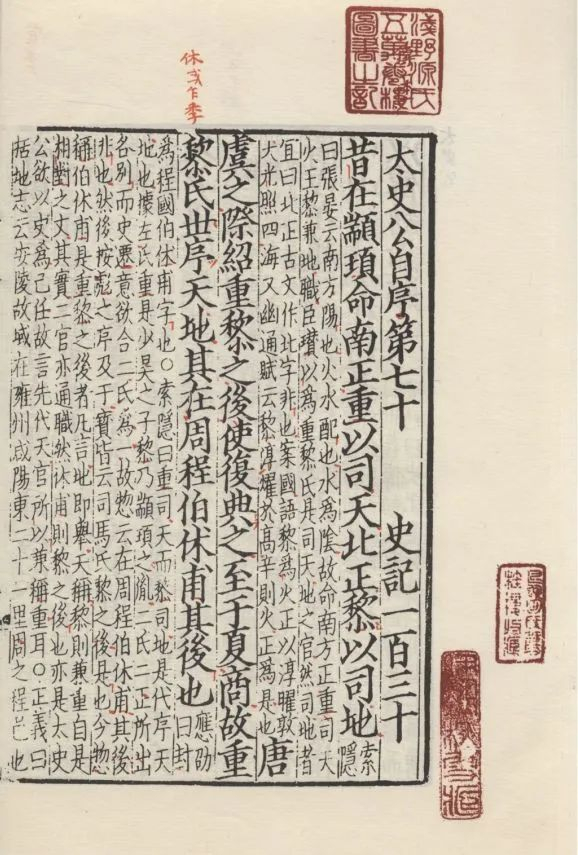 淺野源氏
五萬卷樓
圖書之記
休或乍季
太史公自序第七十 史記一百三十
昔在顓頊命南正重以司天北正黎以司地索隱
曰張晏云南方陽也火水配也水為陰故命南方正重司天
火正黎兼地職臣瓚以為重黎氏是司天地之官然司地者
宜曰北正古文作北字非也案國語黎為火正以淳曜敦
大光照四海又幽通賦云黎淳耀於高辛則火正為是也唐
虞之際紹重黎之後使復典之至于夏商故重
黎氏世序天地其在周程伯休甫其後也應劭曰封
為程國伯休甫字也○索隱曰重司天而黎司地是代序天
地也據左氏重是少昊之子黎乃顓頊之胤二氏二正所出
各別而史遷意欲合二氏為一故惣云在周程伯休甫其後
非也然後按彪之序及于寳皆云司馬氏黎之後是也今惣
稱伯休甫是重黎之後者凡言地即舉天稱黎則兼重自是
相對之文其實二官亦通職然休甫則黎之後也亦是太史
公欲以史為己任故言先代天官所以兼稱重耳○正義曰
括地志云安陵故城在雍州咸陽東二十一里周之程邑也